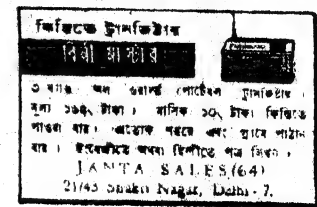 কিস্তিতে ট্রানজিষ্টার
৩ ব্যাণ্ড অল ওয়ার্ল্ড পোর্টেবল ট্রানজিষ্টার ।
মূল্য টাকা । মাসিক ১০২ টাকা কিস্তিতে
পাওয়া যায় । প্রত্যেক শহরে এবং গ্রামে পাঠান
যায় । ইংরেজীতে অথবা হিন্দীতে পত্র লিখুন ।
JANTA SALES (64)
21/43 Shakti Nagar, Delhi - 7.